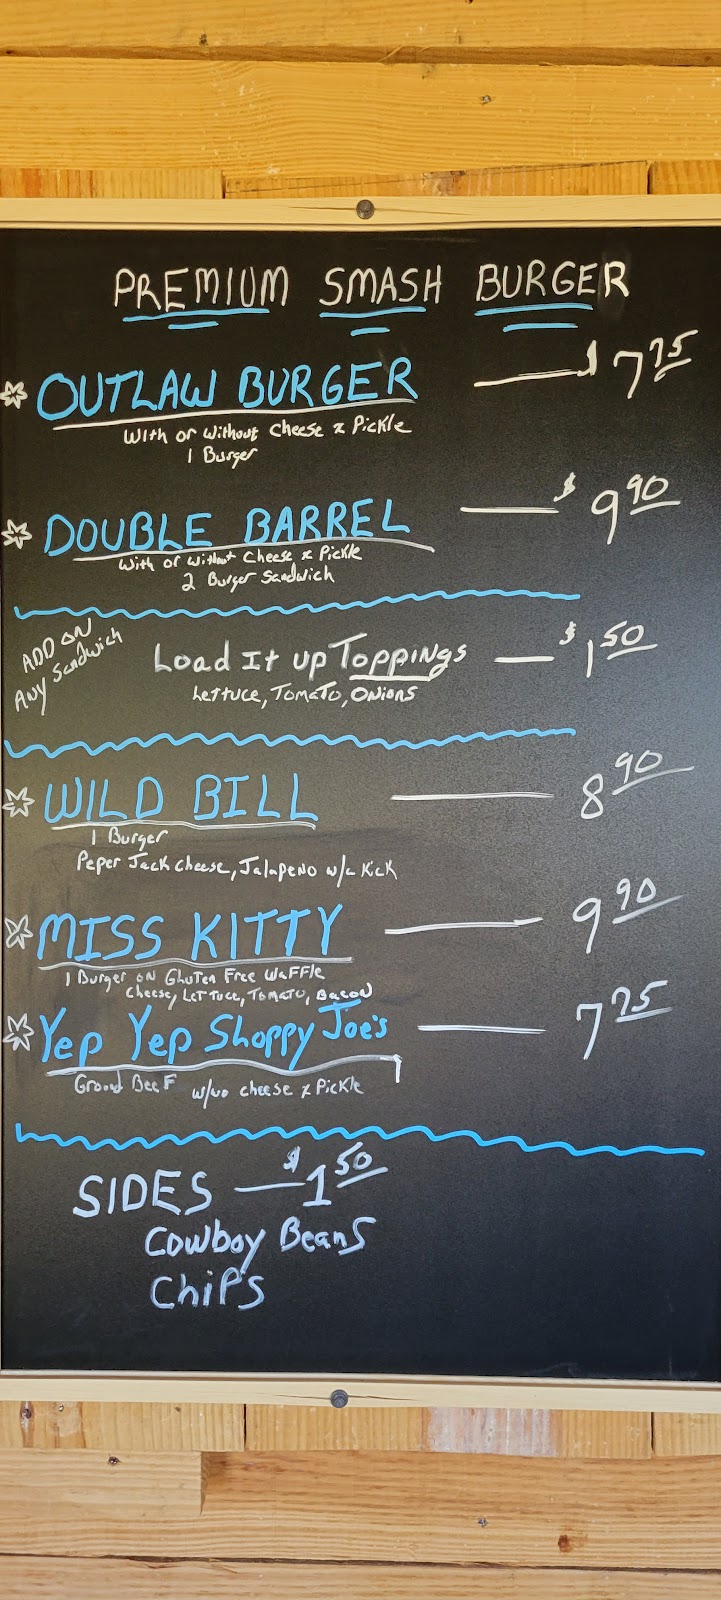 PREMIUM SMASH BURGER
OUTLAW BURGER $ 7 75
With or Without Cheese & Pickle
1 Burger
DOUBLE BARREL $ 9 90
With or Without Cheese & Pickle
2 Burger Sandwich
ADD ON
Any Sandwich
Load It up Toppings $ 1 50
Lettuce, Tomato, Onions
WILD BILL 8 90
1 Burger
Peper Jack Cheese, Jalapeno w/a Kick
MISS KITTY 9 90
1 Burger on Gluten Free Waffle
Cheese, Lettuce, Tomato, Bacon
Yep Yep Shoppy Joe's 7 75
Ground Beef w/wo cheese & Pickle
SIDES $1 50
Cowboy Beans
Chips